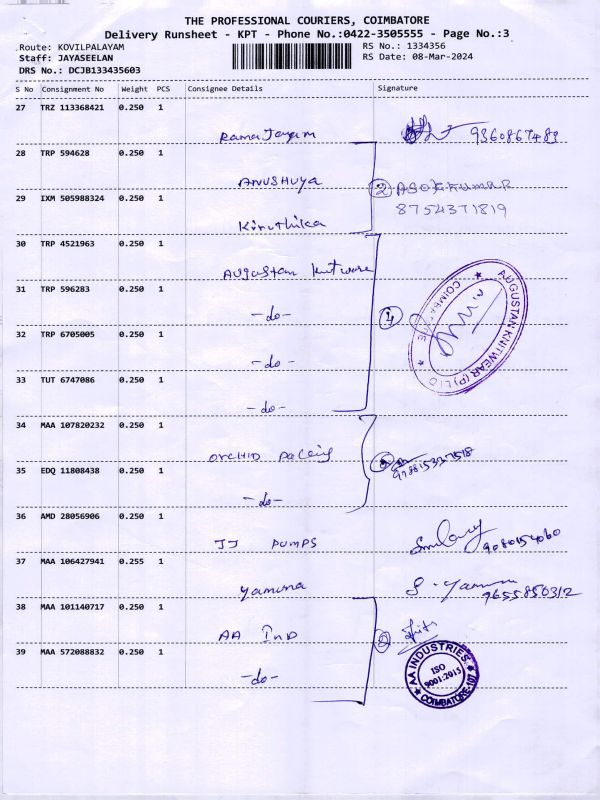 THE PROFESSIONAL COURIERS, COIMBATORE
Delivery Runsheet - KPT - Phone No.:0422-3505555 - Page No.:3
Route: KOVILPALAYAM
RS No.: 1334356
Staff: JAYASEELAN
RS Date: 08-Mar-2024
DRS No.: DCJB133435603
S No Consignment No Weight PCS Consignee Details Signature
27 TRZ 113368421 0.250 1
Rama Jayam 9360867483
28 TRP 594628 0.250 1
Anushuya ② ASOKKUMAR
29 IXM 505988324 0.250 1
8754371819
Kiruthika
30 TRP 4521963 0.250 1
Augustan Knitware
31 TRP 596283 0.250 1
-do- ④ AUGUSTAN KNITWEAR (P) LTD COIMBATORE
32 TRP 6705005 0.250 1
-do-
33 TUT 6747086 0.250 1
-do-
34 MAA 107820232 0.250 1
ORCHID
35 EDQ 11808438 0.250 1
-do-
36 AMD 28056906 0.250 1
JJ PUMPS 9080154060
37 MAA 106427941 0.255 1
Yamuna 9655856312
38 MAA 101140717 0.250 1
AA Ind ②
39 MAA 572088832 0.250 1
-do- AA INDUSTRIES ISO 9001:2015 COIMBATORE-107